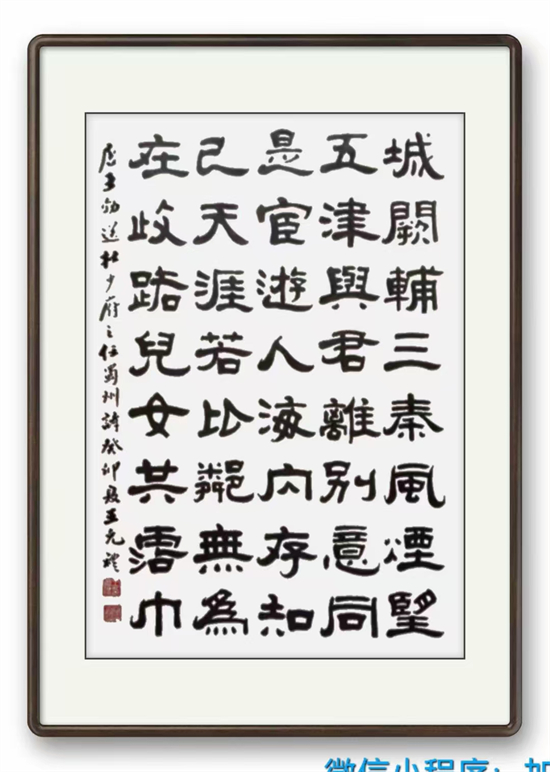 城闕輔三秦風煙望
五津與君離別意同
是宦遊人海内存知
己天涯若比鄰無為
在歧路兒女共霑巾
唐王勃送杜少府之任蜀州詩癸卯夏王
微信小程序：加